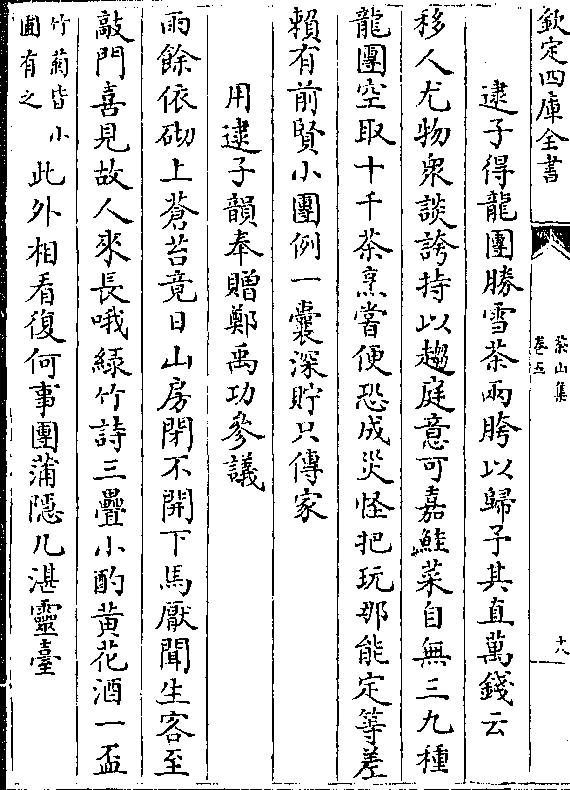 欽定四庫全書
茶山集
卷五
十八
逮子得龍團勝雪茶兩胯以歸予其直萬錢云
移人尤物衆談誇持以趨庭意可嘉鮭菜自無三九種
龍團空取十千茶烹嘗便恐成災怪把玩那能定等差
賴有前賢小團例一囊深貯只傳家
用逮子韻奉贈鄭禹功參議
雨餘依砌上蒼苔竟日山房閉不開下馬厭聞生客至
敲門喜見故人來長哦綠竹詩三疊小酌黃花酒一盃
竹菊皆小
圃有之
此外相看復何事團蒲隱几湛靈臺